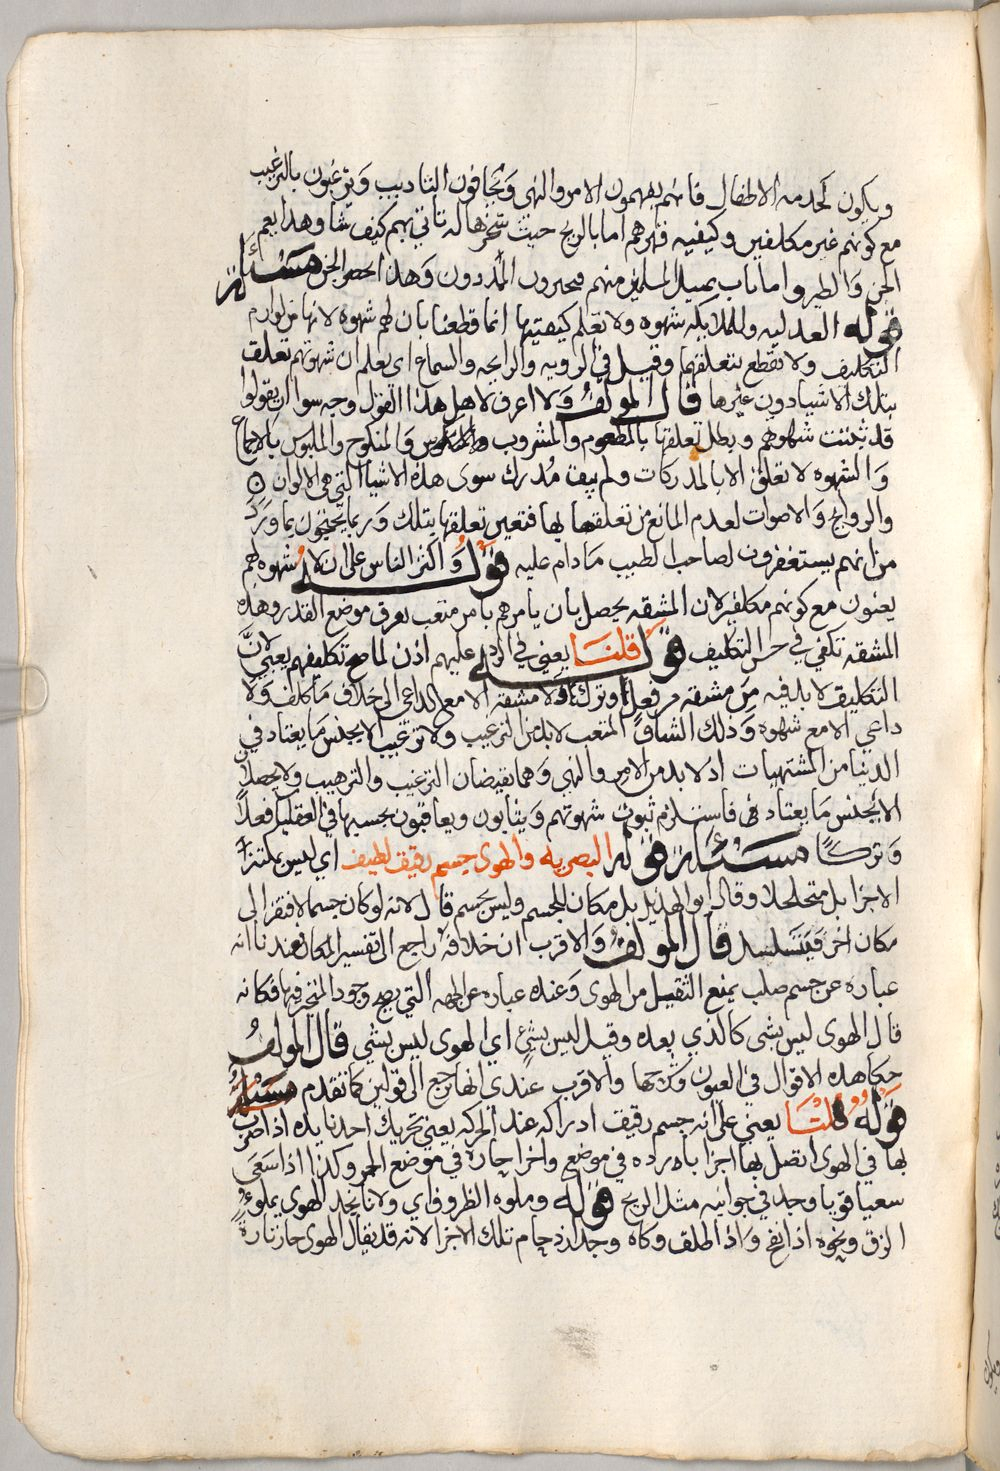 ويكون كخدمه الاطفال فانهم يفهمون الامر والنهى ويخافون التاديب ويرغبون بالترغيب
مع كونهم غير مكلفين وكيفيه قهرهم اما بالريح حيث سخرها له تاتى بهم كيف شا وهذا يعم
الجن والطير واما باب الملين منهم المردون وهذا الجن مسئلة
قوله العدليه وللملايكه شهوه ولا نعلم كيفيتها انما قطعنا بان لهم شهوه لانها من لوازم
التكليف ولا نقطع بتعلقها وقيل في الرويه والرايحه والسماع اى يعلم ان شهوتهم تعلق
بتلك الاشيا دون غيرها قال المولف ولا اعرف لاهل هذا القول وجه سوا ان يقولوا
قد ثبتت شهوهم وبطل تعلقها بالمطعوم والمشروب والمنكوح والملبوس بالاجماع
والشهوه لا تعلق الا بالمدركات ولم يبق مدرك سوى هذه الاشيا التي هى الالوان
والروايح والاصوات لعدم المانع من تعلقها بها فتعين تعلقها بتلك وربما يحتجون بما ورد
من انهم يستغفرون لصاحب الطيب مادام عليه قوله واكثر الناس على ان لا شهوه لهم
يعنون مع كونهم مكلفين لان المشقه يحصل بان يامرهم بامر متعب يعرق موضع القدر وهذه
المشقه تكفي في حسن التكليف قوله قلنا يعني في الرد عليهم اذن لما صح تكليفهم يعني لان
التكليف لا بد فيه من مشقه من فعل او ترك ولا مشقه الا مع الداعى الى خلاف ما كلف ولا
داعي الا مع شهوه وذلك الشاق المتعب لا بد من الترغيب ولا ترغيب الا بجنس ما يعتاد في
الدنيا من المشتهيات اذ لا بد من الامر والنهى وهما يقيضان الترغيب والترهيب ولا يحصل
الا بجنس ما يعتاد هى فاستلزم ثبوت شهوتهم ويثابون ويعاقبون بحسبها في العقليل فعلاً
وتركاً مسئلة قوله البصريه والهوى جسم رقيق لطيف اي ليس بملتز
الاجزا بل متخلخلا وقال ابو الهذيل بل مكان للجسم وليس بجسم قال لانه لو كان جسما لافتقر الى
مكان اخر فيتسلسل قال المولف والاقرب ان خلافه راجع الى تفسير المكان فعندنا انه
عباره عن جسم صلب يمنع الثقيل من الهوى وعنده عباره عن الجهه التي يصح وجود المتحيز فيها فكانه
قال الهوى ليس بشى كالذي بعده وقيل ليس بشئ اي الهوى ليس بشي قال المولف
حكا هذه الاقوال في العيون وشرحها والاقرب عندى انها ترجع الى قولين كما تقدم مسئلة
قوله قلنا يعني على انه جسم رقيق ادراكه عند الحركه يعني تحريك احدنا يده اذا ضرب
بها في الهوى اتصل بها اجزا بارده في موضع واخرا حاره في موضع الحر وكذا اذا سعى
سعيا قويا وجد في جوانبه مثل الريح قوله وملوه الظروف اي ولانا نجد الهوى يملوء
الزق ونحوه اذا نفخ واذا اطلق وكاه وجد ازدحام تلك الاجزا لانه قد يقال الهوى حار تارةً